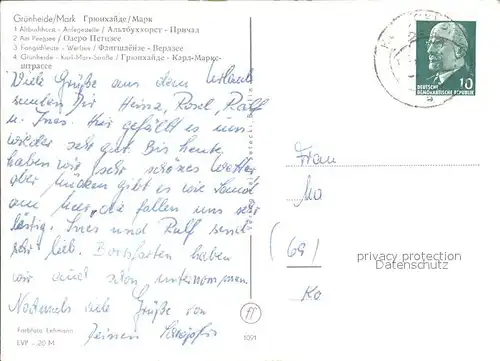 Grünheide/Mark Грюнхайде/Марк
1 Altbuchhorst - Anlegestelle / Альтбуххорст - Причал
2 Am Peetzsee / Озеро Петцзее
3 Fangschleuse - Werlsee / Фангшлёйзе - Верлзее
4 Grünheide - Karl-Marx-Straße / Грюнхайде - Карл-Маркс-штрассе
Viele Grüße aus dem Urlaub
senden Dir Heinz, Rosel, Ralf
u. Ines. Hier gefällt es uns
wieder sehr gut. Bis heute
haben wir sehr schönes Wetter
aber Mücken gibt es wie Sand
am Meer, die fallen uns sehr
lästig. Ines und Ralf sind
sehr lieb. Bootsfahrten haben
wir auch schon unternommen.
Nochmals viele Grüße von
Deinen
Farbfoto: Lehmann
LVP -.20 M
1091
DEUTSCHE
DEMOKRATISCHE REPUBLIK
10
Frau
Ma
(69)
Ko
privacy protection
Datenschutz